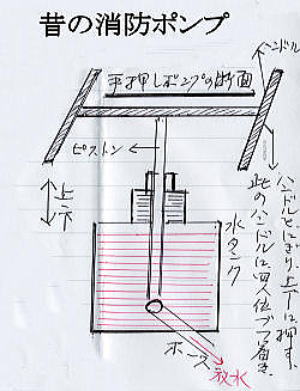 昔の消防ポンプ
ハンドル
手押しポンプの断面
ピストン
上下
ハンドルをにぎり上下に押す、
此のハンドルに四人位づつ着き、
水タンク
ホース
放水